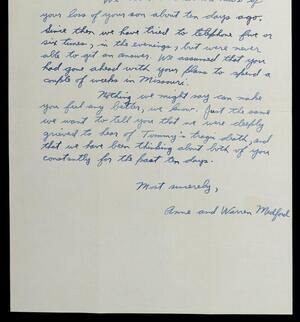 your loss of your son about ten days ago.
Since then we have tried to telephone five or
six times, in the evenings, but were never
able to get an answer. We assumed that you
had gone ahead with your plans to spend a
couple of weeks in Missouri.
Nothing we might say can make
you feel any better, we know. Just the same
we want to tell you that we were deeply
grieved to hear of Tommy's tragic death, and
that we have been thinking about both of you
constantly for the past ten days.
Most sincerely,
Anne and Warren Medford